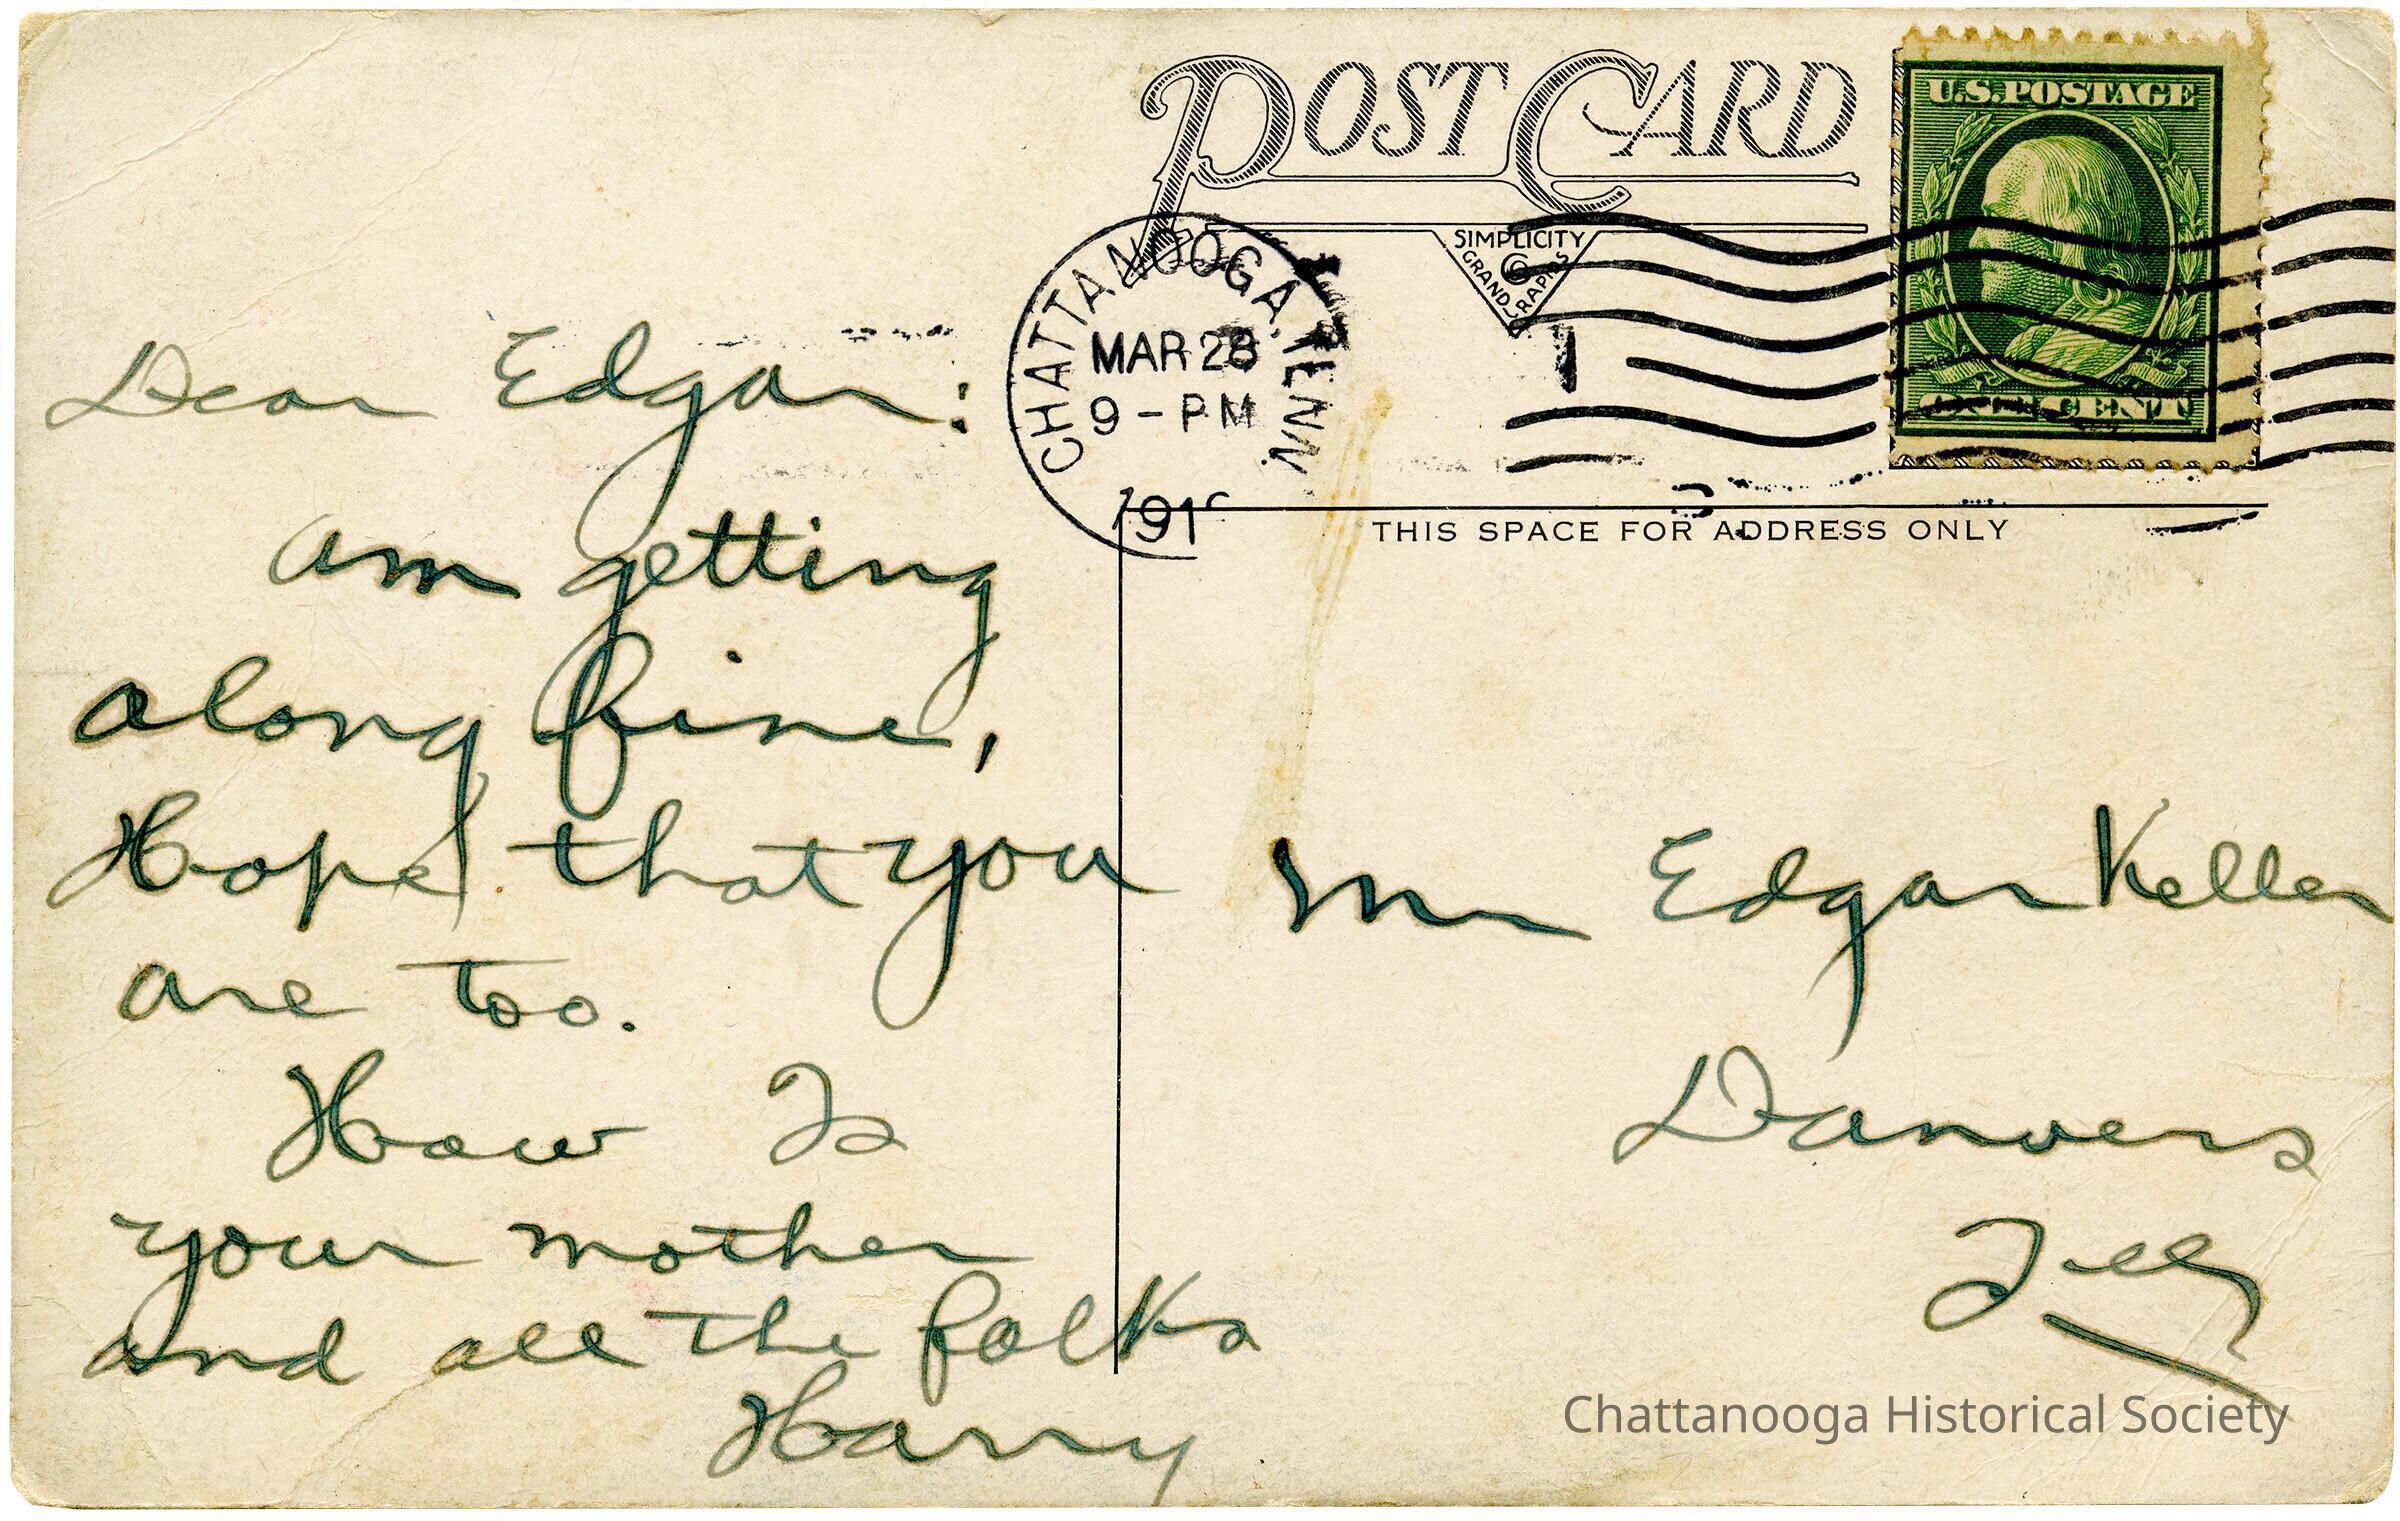 POST CARD
U.S. POSTAGE
SIMPLICITY
GRAND RAPIDS
CHATTANOOGA, TENN.
MAR 28
9 - PM
191
THIS SPACE FOR ADDRESS ONLY
Dear Edgar:
am getting
along fine,
Hope that you
are too.
How Is
your mother
and all the folks
Harry
Mr Edgar Keller
Danvers
Ill
Chattanooga Historical Society